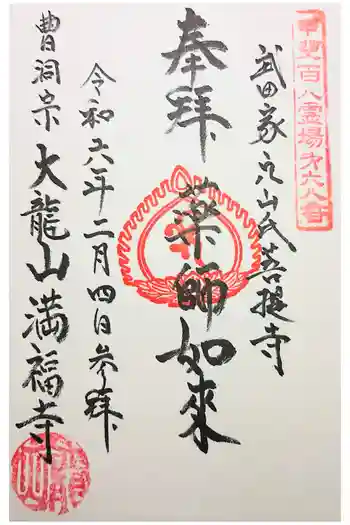 甲斐百八霊場第六八番
武田家穴山氏菩提寺
奉拝 薬師如来
令和六年二月四日参拝
曹洞宗 大龍山満福寺